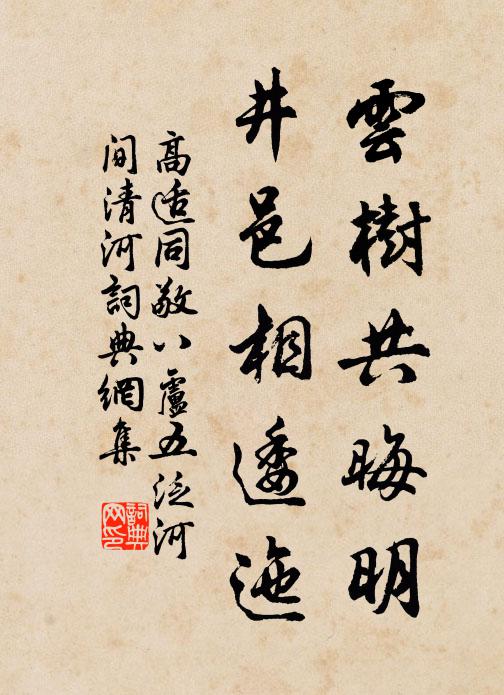 雲樹共晦明
井邑相逶迤
高适同敬八盧五泛河
間清河詞典網集
詞典
网印